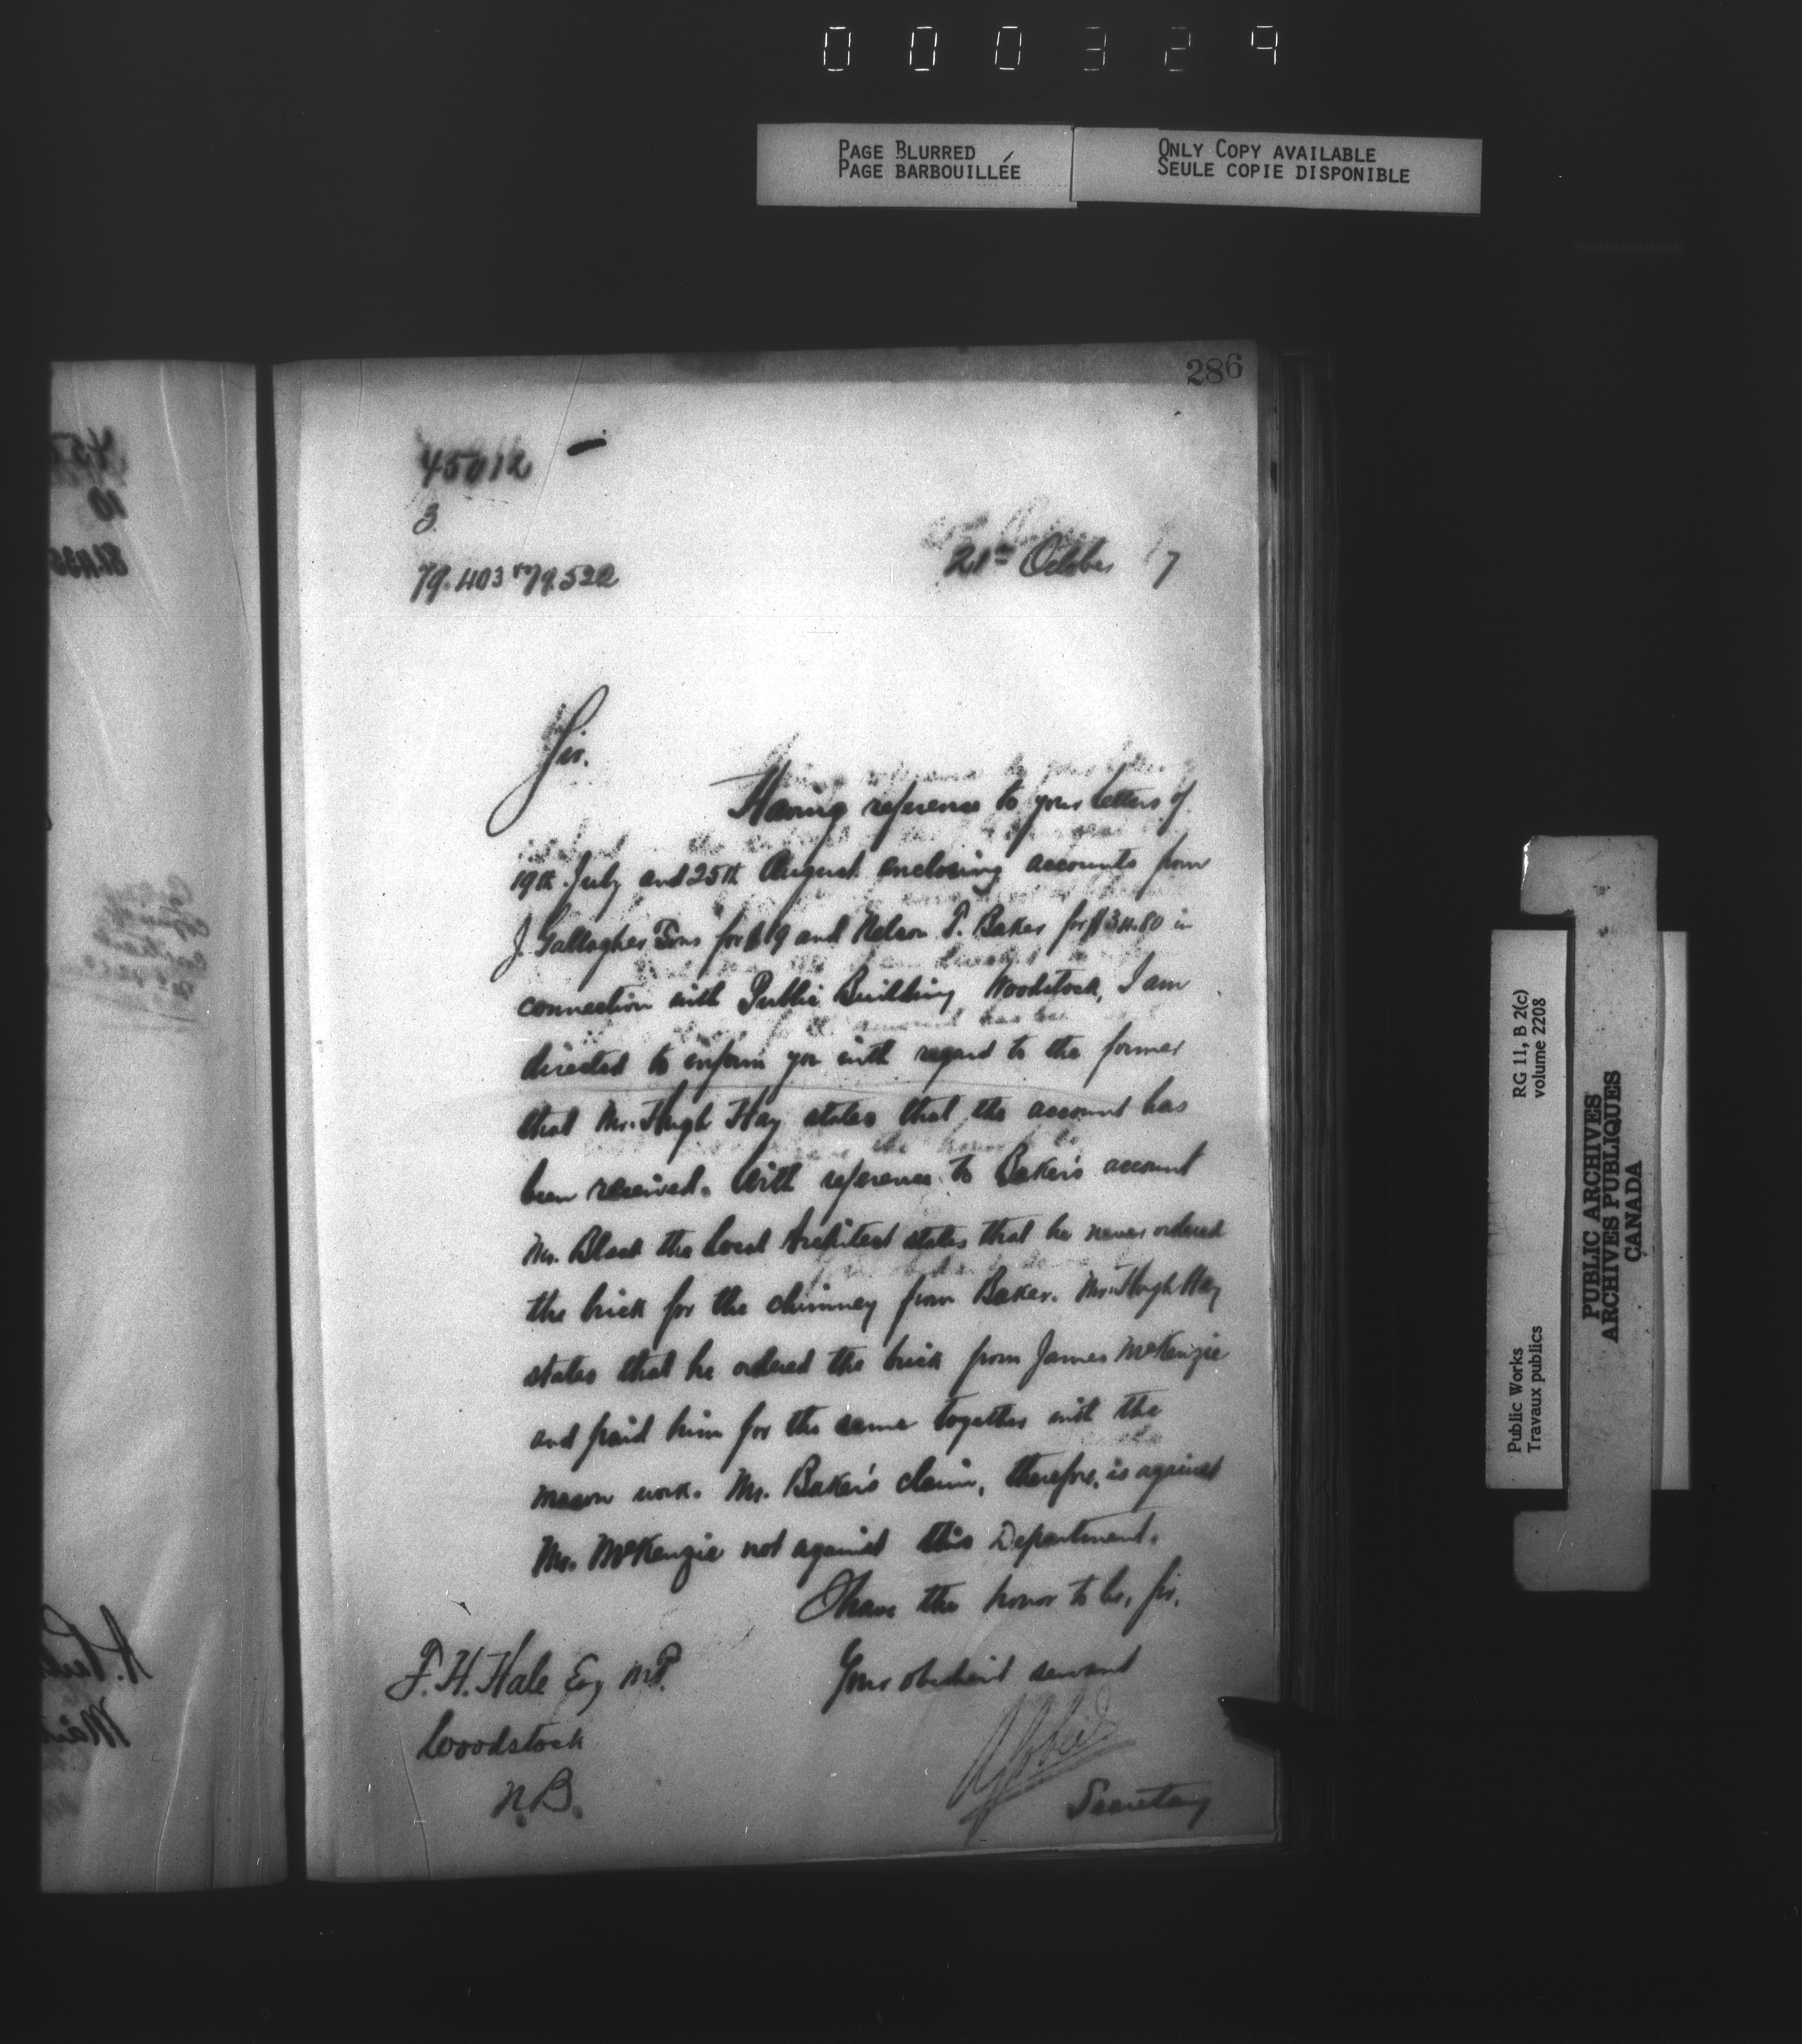 000329
PAGE BLURRED
PAGE BARBOUILLÉE
ONLY COPY AVAILABLE
SEULE COPIE DISPONIBLE
286
45012
3
79.403 to 79.522
21st October 7
Sir.
Having reference to your letters of
19th July and 25th August enclosing accounts from
J. Gallagher Sons for $19 and Nelson P. Baker for in
connection with Public Building Woodstock, I am
directed to inform you with regard to the former
that Mr. Hugh Hay states that the account has
been received. With reference to Baker's account
Mr. Black the Local Architect states that he never ordered
the brick for the chimney from Baker. Mr. Hugh Hay
states that he ordered the brick from James McKenzie
and paid him for the same together with the
mason work. Mr. Baker's claim, therefore, is against
Mr. McKenzie not against this Department.
I have the honor to be, Sir,
Your obedient servant
F. H. Hale Esq M.P.
Woodstock
N.B.
Secretary
RG 11, B 2(c)
volume 2208
Public Works
Travaux publics
PUBLIC ARCHIVES
ARCHIVES PUBLIQUES
CANADA